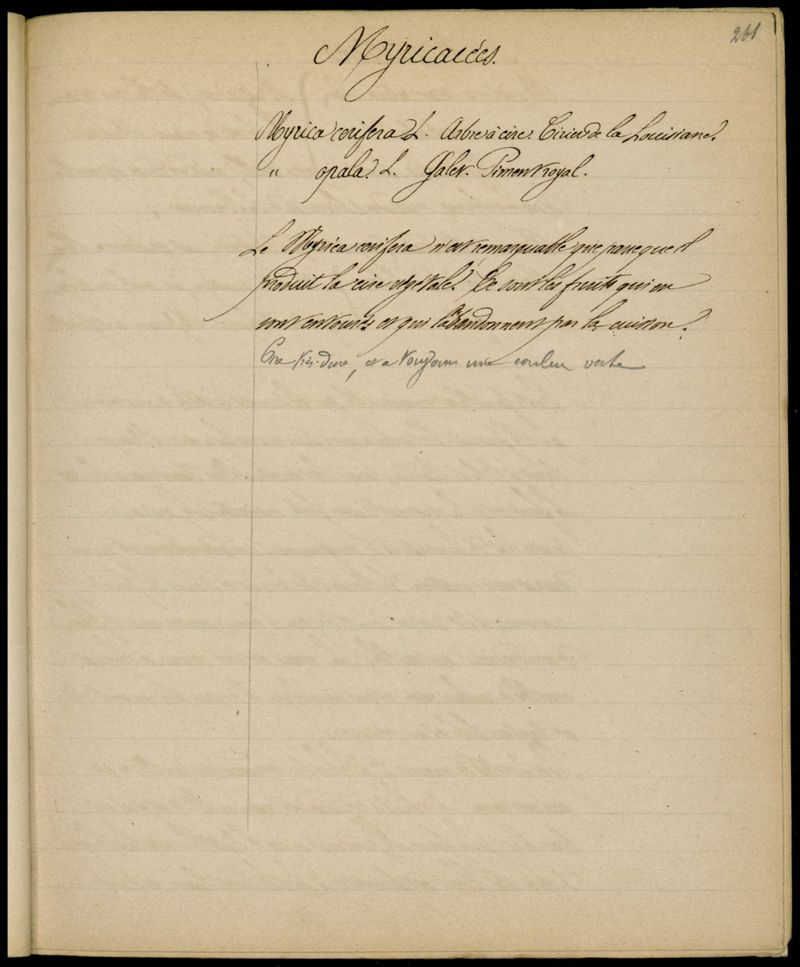 261
Myricacées.
Myrica cerifera L. Arbre à cire. Cirier de la Louisiane.
" opala. L. Galet. Piment royal.
Le Myrica cerifera n'est remarquable que parce que il
produit la cire végétale. Ce sont les fruits qui en
sont entourés et qui l'abandonnent par la cuisson.
Cire très-dure, et a toujours une couleur verte